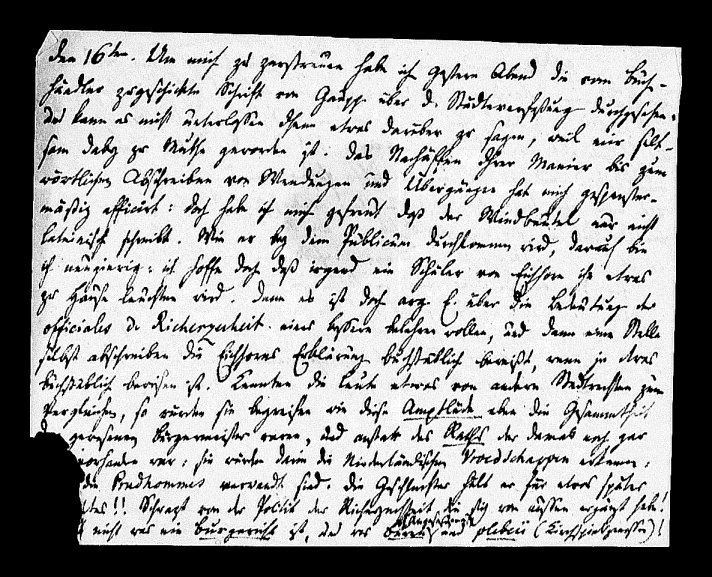 den 16ten. Um mich zu zerstreuen habe ich gestern Abend die vom Buch-
händler zugeschickte Schrift von Gaupp über d. Städteverfassung durchgesehen.
Ich kann es nicht unterlassen Ihnen etwas darüber zu sagen, weil mir selt-
sam dabey zu Muthe geworden ist. Das Nachäffen Ihrer Manier bis zum
wörtlichen Abschreiben von Wendungen und Übergängen hat mich gespenster-
mäßig afficirt: doch habe ich mich gefreut daß der Windbeutel nur nicht
lateinisch schreibt. Wie er bey dem Publicum durchkommen wird, darauf bin
ich neugierig: ich hoffe doch daß irgend ein Schüler von Eichhorn ihm etwas
zu Hause leuchten wird. Denn es ist doch arg E. über die Bedeutung der
officiales de Richerzecheit eines bessern belehren wollen, und dann eine Stelle
selbst abschreiben die Eichhorns Erklärung buchstäblich beweißt, wenn je etwas
buchstäblich bewiesen ist. Kennten die Leute etwas von andern Stadtrechten zum
Vergleichen, so würden sie begreifen wie diese Amptlüde eben die Gesammtheit
gewesenen Bürgermeister waren, und anstatt des Raths der damals noch gar
vorhanden war; sie würden darin die Niederländischen Vroedschappen erkennen,
die Prudhommes verwandt sind. Die Geschlechter hält er für etwas später
!! Schwazt von der Politik der Richerzecheit die sich von aussen ergänzt habe!
nicht was ein burgericht ist, und was und plebeii (Kirchspielsgenossen)!